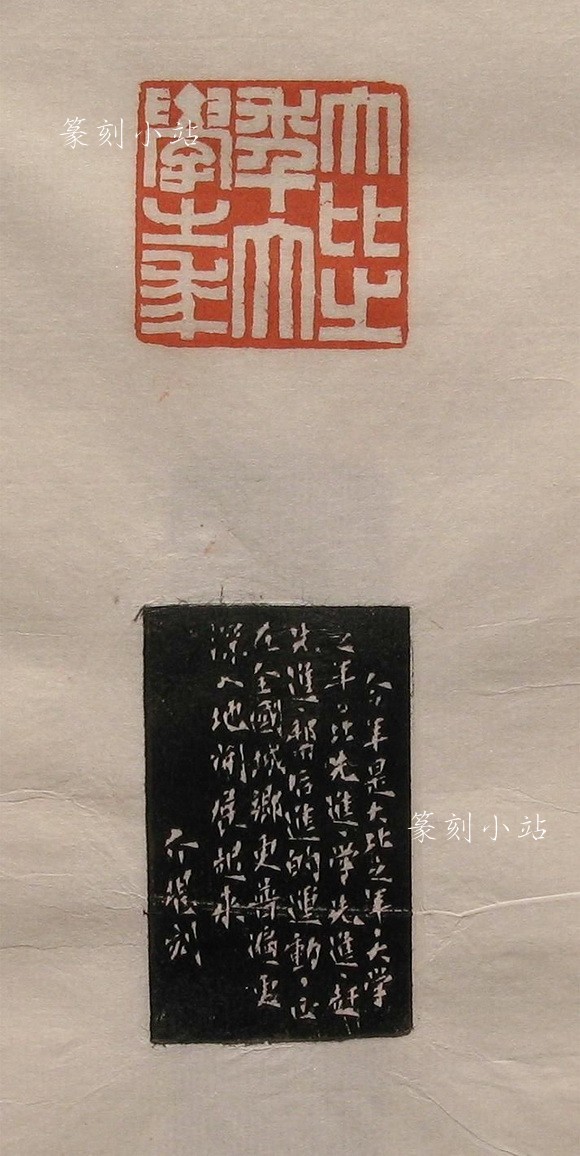 大比之
年大
學之年
今年是大比之年、大学
之年、比先進、学先進、赶
先進、帮后進的運動、正
在全國城鄉更普遍更
深入地開展起來
介堪刻
篆刻小站
篆刻小站